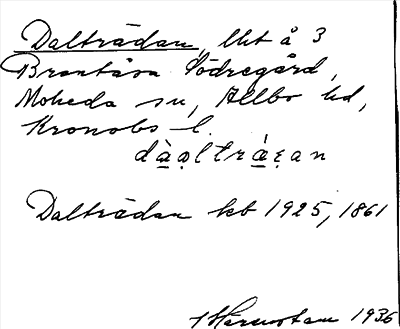 Dalträdan, lht å 3
Brantåsa Södregård,
Moheda sn, Allbo hd,
Kronobs l.
Dalträdan kb 1925, 1861
1936